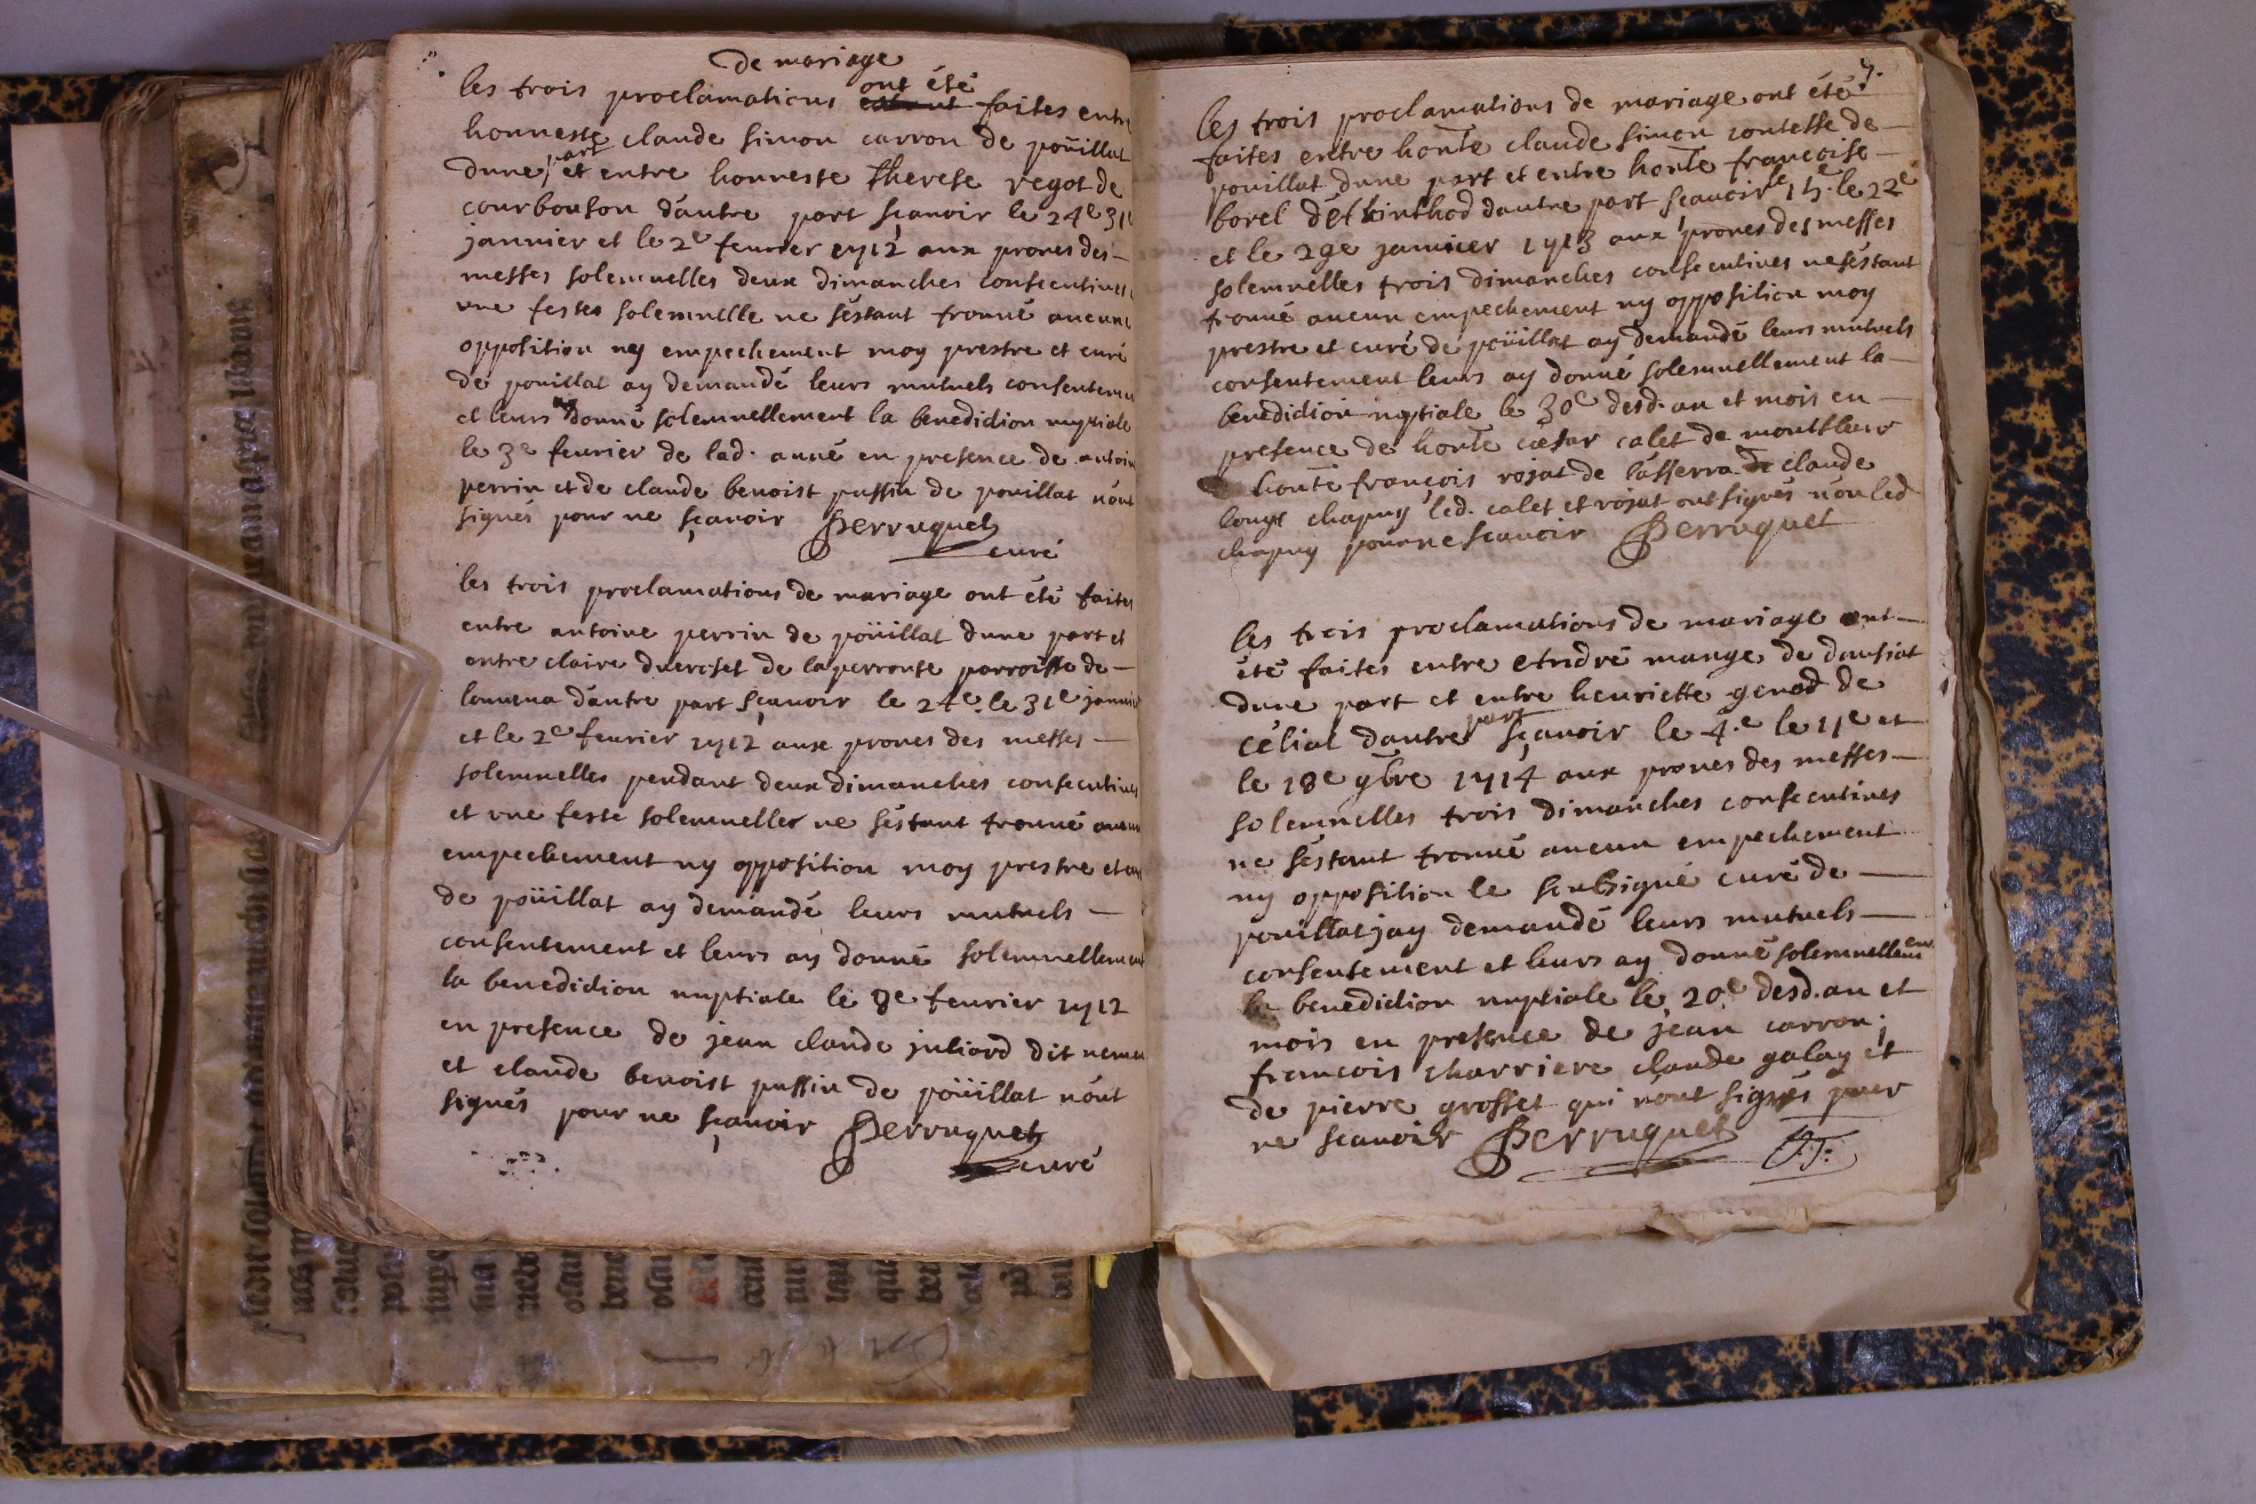 de mariage
ont été
les trois proclamations estant faites entre
honneste claude simon carron de poüillat
part
dune et entre honneste therese regot de
courbouson dautre part sçavoir le 24e 31e
janvier et le 2e fevrier 1712 aux prones des
messes solemnelles deux dimanches consecutives
vne festes solemnelle ne séstant trouvé aucune
opposition ny empechement moy prestre et curé
de poüillat ay demandé leurs mutuels consentemen
et leurs ay donné solemnellement la benediction nuptiale
le 3e fevrier de lad. anné en presence de antoin
perrin et de claude benoist puffin de pouillat n'ont
signés pour ne sçavoir Perruquet
curé
les trois proclamations de mariage ont été faites
entre antoine perrin de poüillat dune part et
entre claire duercset de laperrouse parroisse de
louvena dautre part sçavoir le 24e. le 31e janvie
et le 2e fevrier 1712 aux prones des messes
solemnelles pendant deux dimanches consecutives
et vne feste solemnelles ne séstant trouvé aucun
empechement ny opposition moy prestre et cur
de poüillat ay demandé leurs mutuels
consentement et leurs ay donné solemnellement
la benediction nuptiale le 8e fevrier 1712
en presence de jean claude juliard dit
et claude benoist puffin de poüillat n'ont
signés pour ne sçavoir Perruquet
curé
7.
les trois proclamations de mariage ont été
faites entre honte claude simon contesse de
pouillat dune part et entre honte francoise
borel de thinthod dautre part scavoir le 15e. le 22e
et le 29e janvier 1713 aux prones des messes
solemnelles trois dimanches consecutives ne séstant
trouvé aucun empechement ny opposition moy
prestre et curé de poüillat ay demandé leurs mutuels
consentement leurs ay donné solemnellement la
benediction nuptiale le 30e desd. an et mois en
presence de honte cæsar calet de montfleur
honte françois rosat de lasserra de claude
louys chapuy led. calet et rosat ont signés non led
chapuy pour ne scavoir Perruquet
les trois proclamations de mariage ont
été faites entre andré mange de dansiat
dune part et entre henriette genod de
part
céliat dautre sçavoir le 4.e le 11e et
le 18e 9bre 1714 aux prones des messes
solemnelles trois dimanches consecutives
ne séstant trouvé aucun empechement
ny opposition le soubsigné curé de
pouillat jay demandé leurs mutuels
consentement et leurs ay donné solemnellem
la benediction nuptiale le 20e desd. an et
mois en presence de jean carron;
francois charriere claude galay et
de pierre grosset qui n'ont signés pour
ne scavoir Perruquet